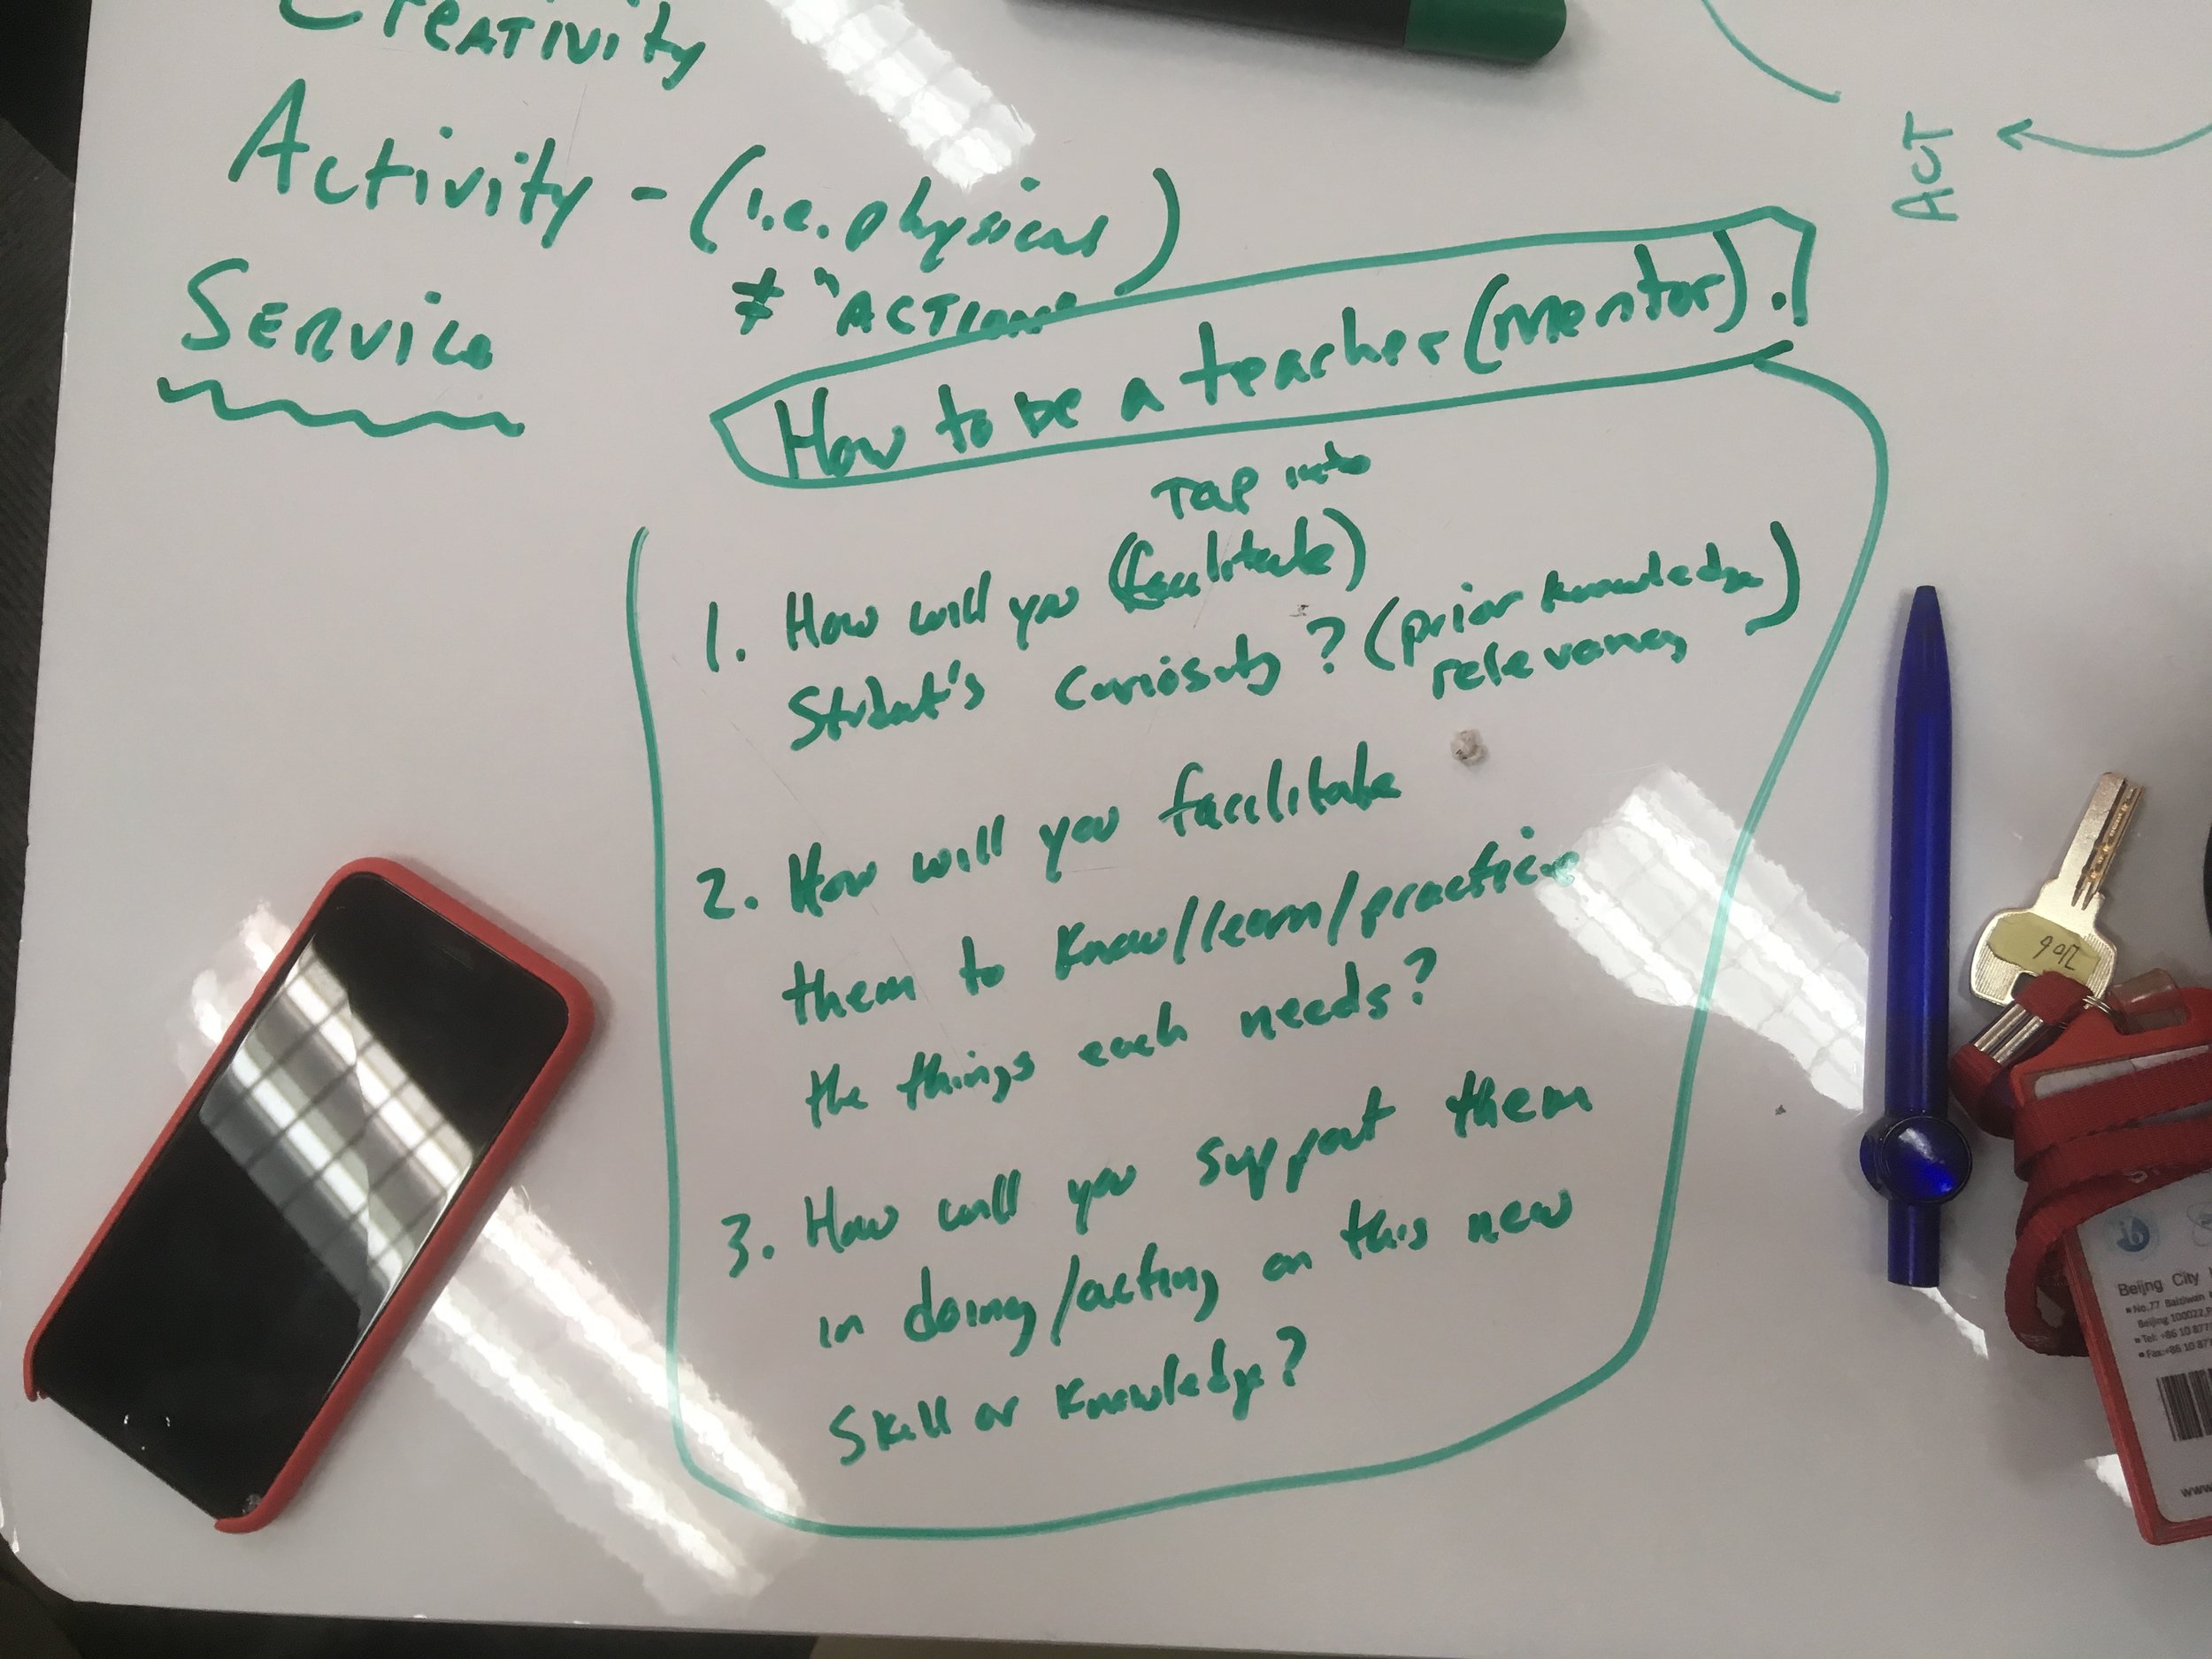 Creativity
Activity - (i.e. physical)
≠ "ACTION"
SERVICE
ACT
How to be a teacher (mentor).
Tap into
1. How will you (facilitate)
Student's curiosity? (prior knowledge)
relevancy
2. How will you facilitate
them to know/learn/practice
the things each needs?
3. How will you support them
in doing/acting on this new
skill or knowledge?
Beijng City
No.77
Beijing 100022,P
Tel: +86 10 877
Fax:+86 10 877
www